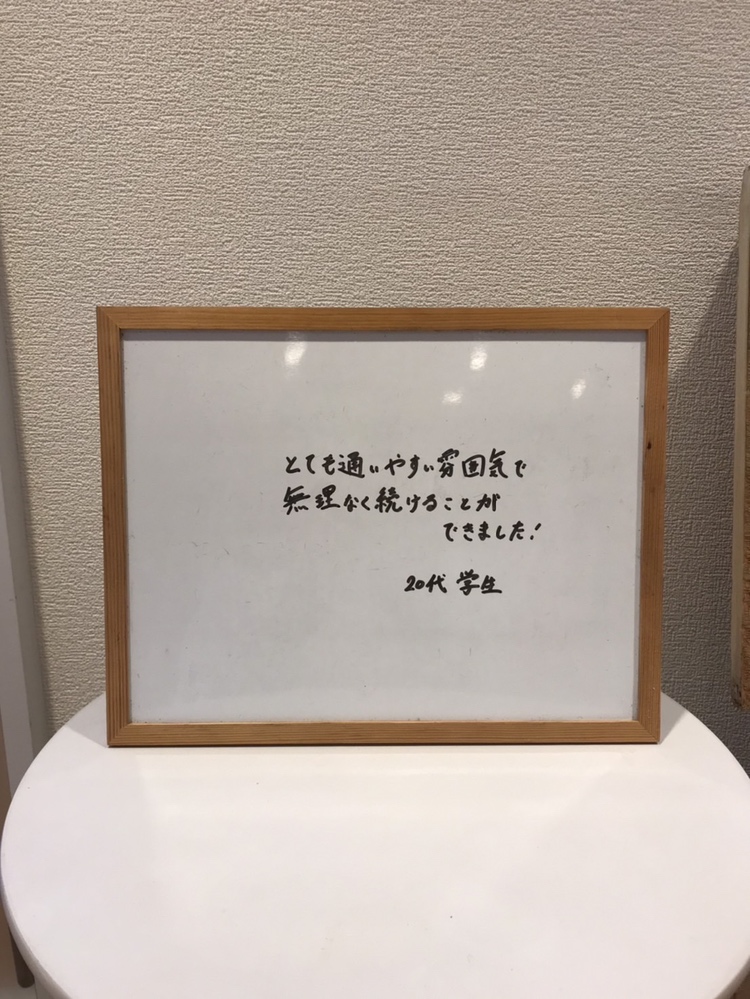 とても通いやすい雰囲気で
無理なく続けることが
できました!
20代 学生